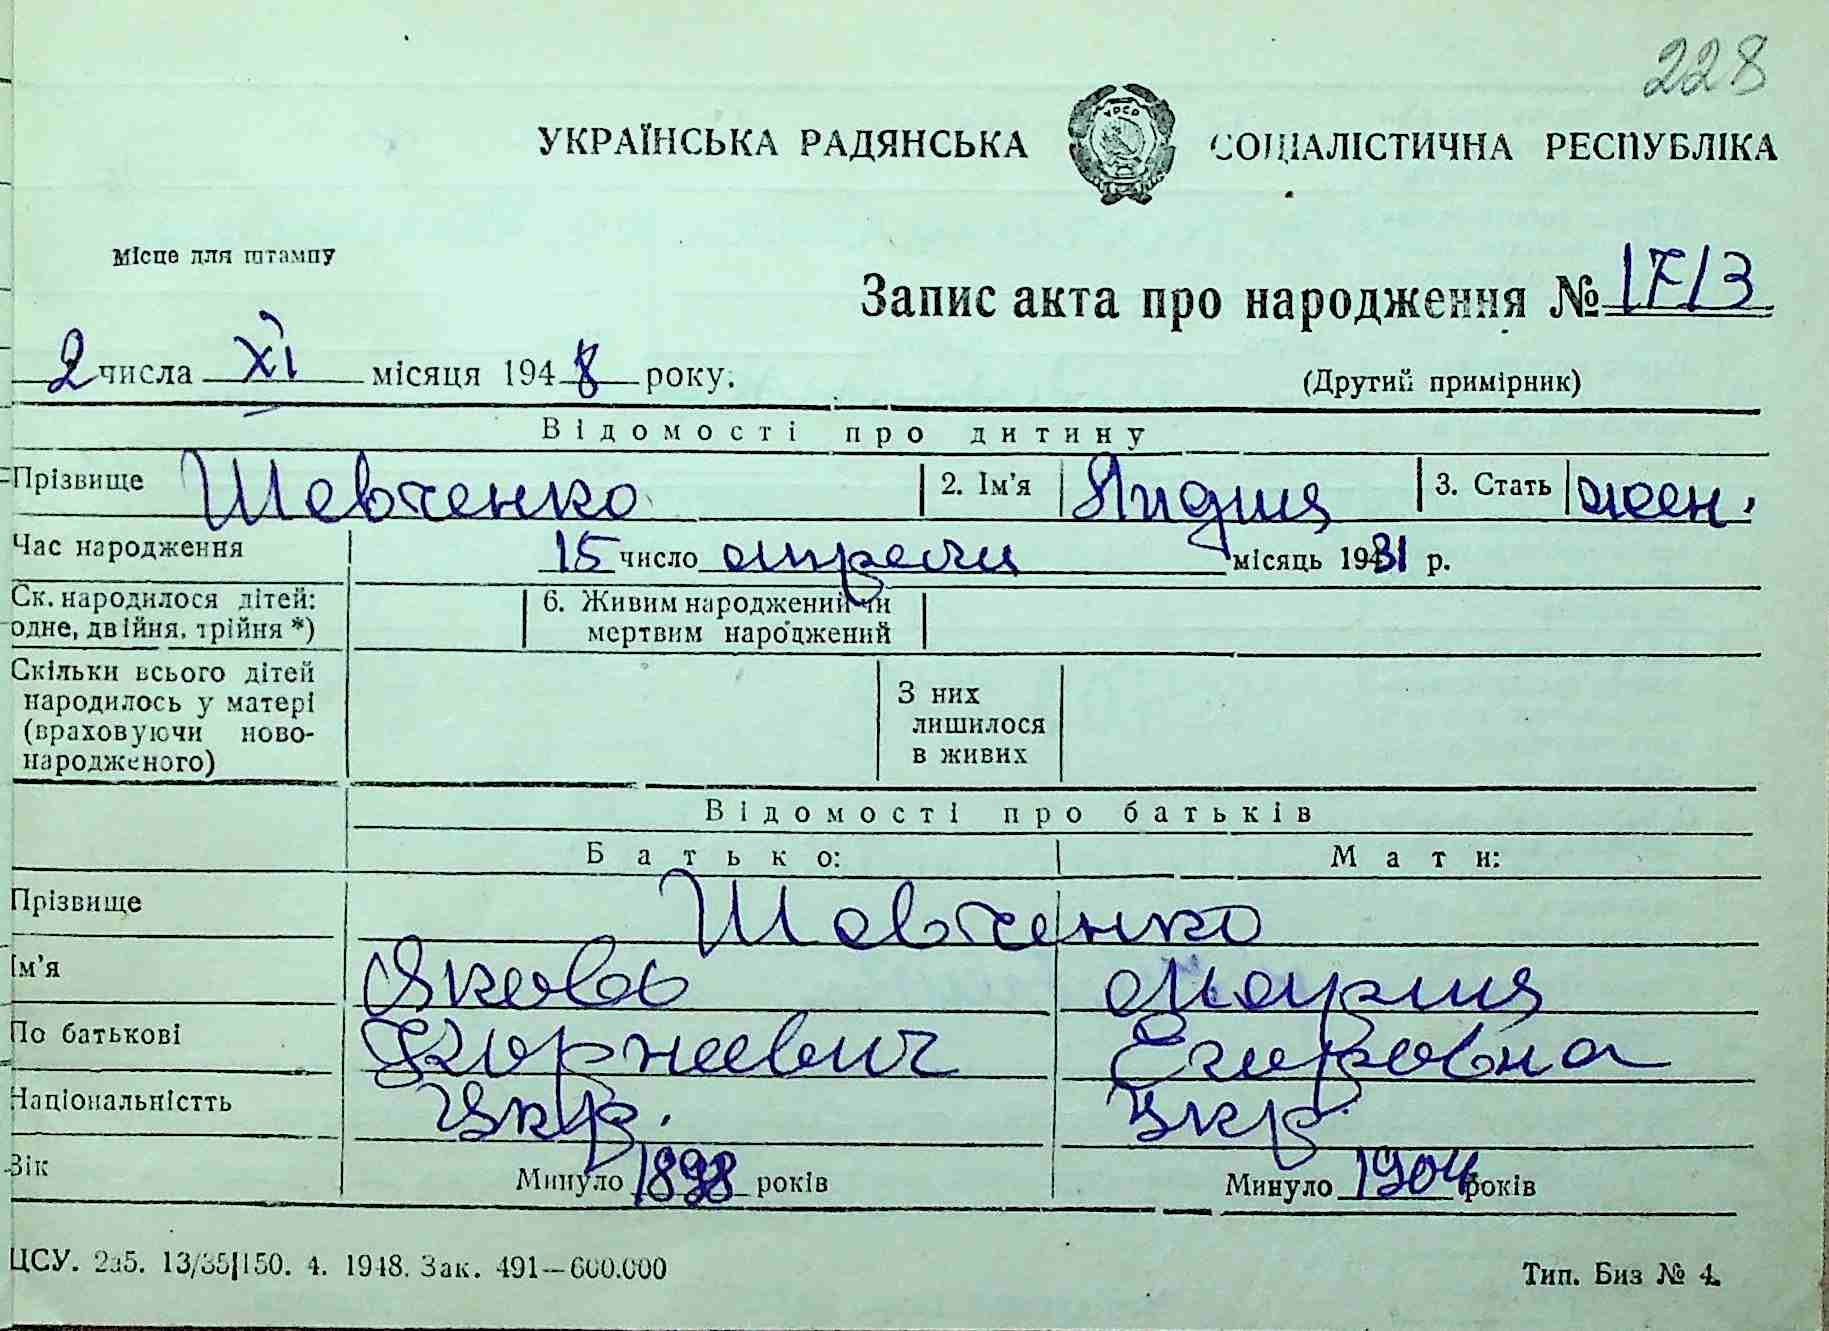 228
УКРАЇНСЬКА РАДЯНСЬКА СОЦІАЛІСТИЧНА РЕСПУБЛІКА
УРСР
Місце для штампу
Запис акта про народження № 1713
2 числа XI місяця 1948 року.
(Другий примірник)
Відомості про дитину
Прізвище Шевченко 2. Ім'я Лидия 3. Стать жен.
Час народження 15 число апреля місяць 1931 р.
Ск. народилося дітей: одне, двійня, трійня *) 6. Живим народжений чи мертвим народжений
Скільки всього дітей народилось у матері (враховуючи ново-народженого) З них лишилося в живих
Відомості про батьків
Батько: Мати:
Прізвище Шевченко
Ім'я Яковь Мария
По батькові Корнеевич Егоровна
Національністть Укр. Укр
Вік Минуло 1898 років Минуло 1904 років
ЦСУ. 2а5. 13/35|150. 4. 1948. Зак. 491—600.000 Тип. Биз № 4.